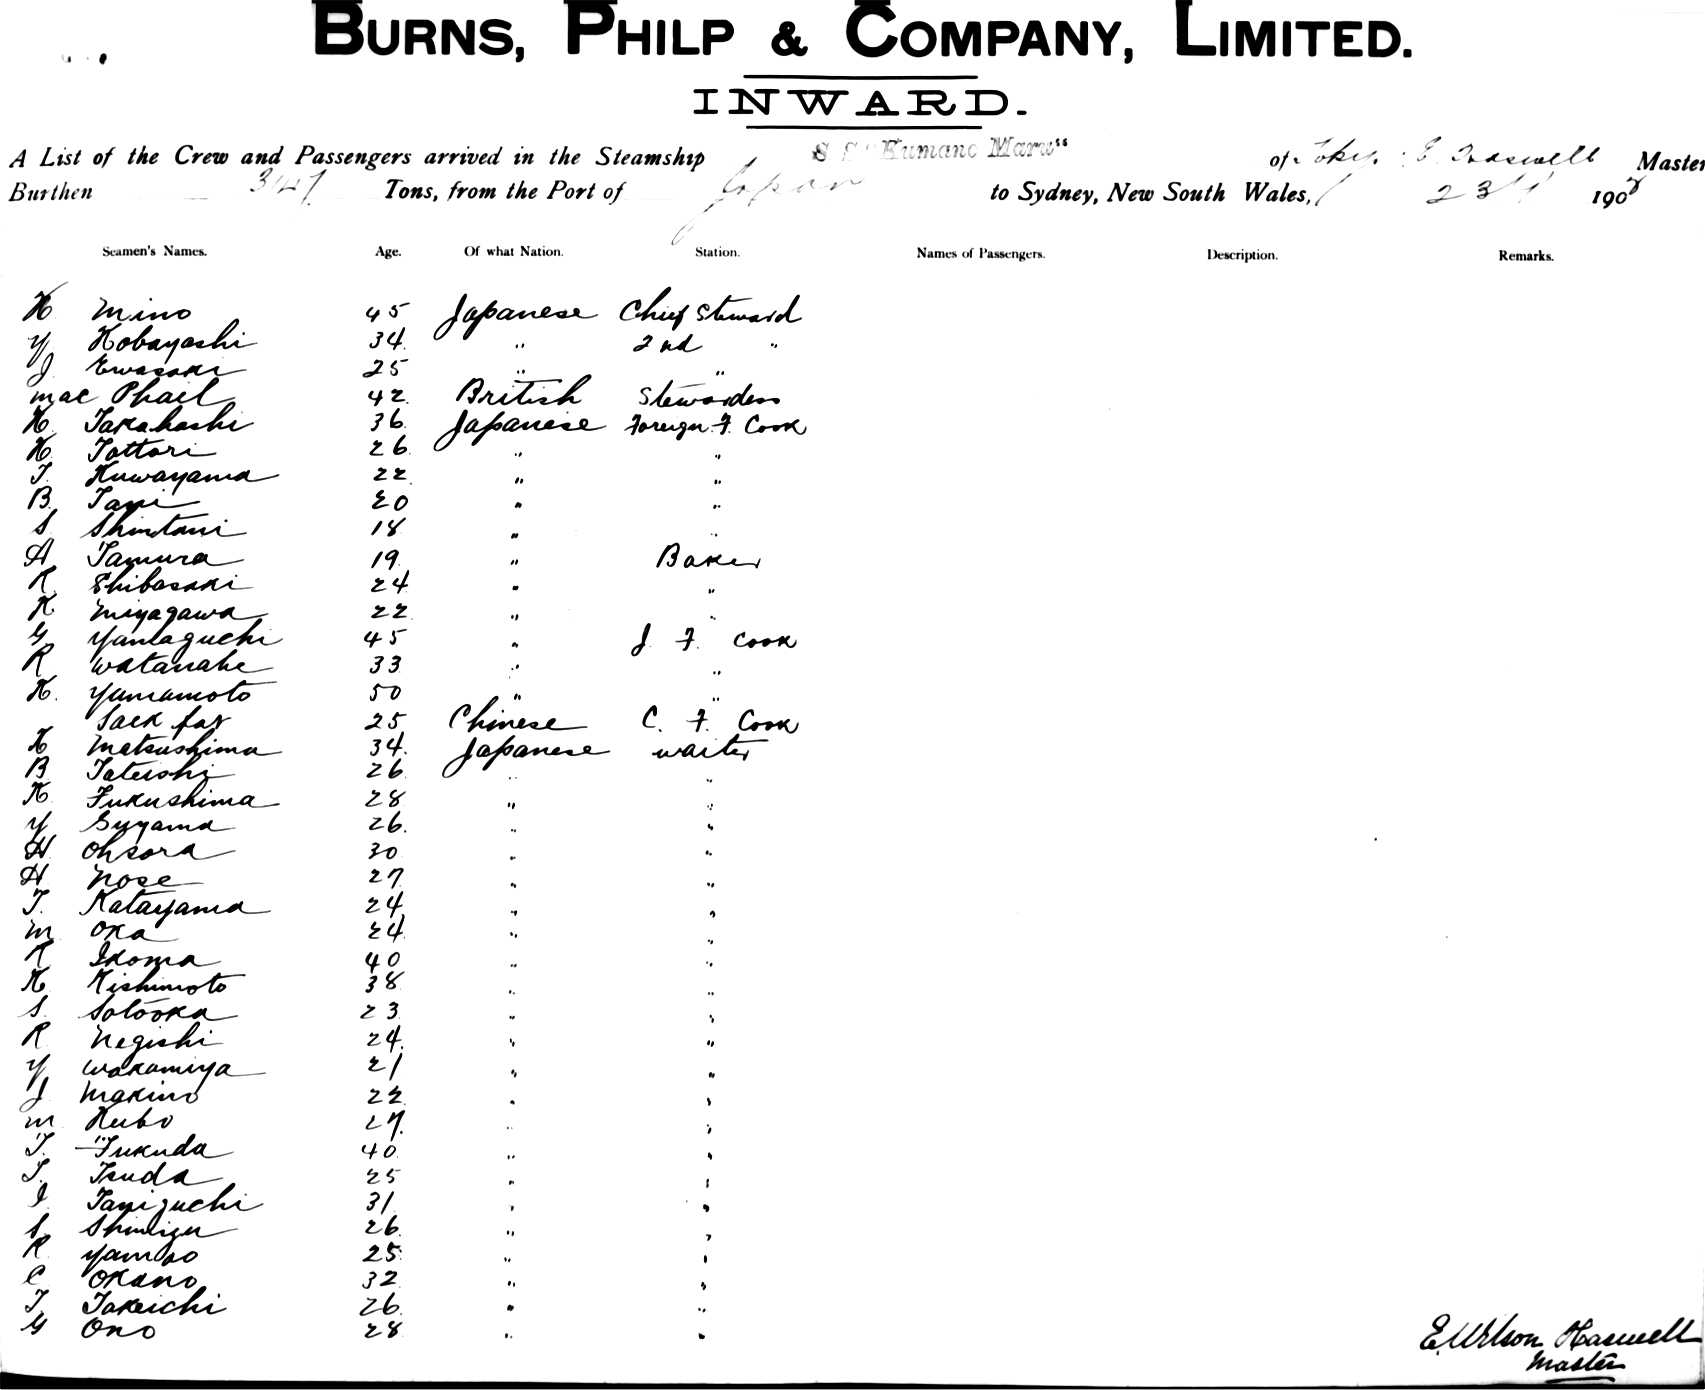 BURNS, PHILP & COMPANY, LIMITED.
INWARD.
A List of the Crew and Passengers arrived in the Steamship S S "Kumano Maru" of Tokyo E. Haswell Master
Burthen 3147 Tons, from the Port of Japan to Sydney, New South Wales, 23 1 190
Seamen's Names. Age. Of what Nation. Station. Names of Passengers. Description. Remarks.
K Mino 45 Japanese Chief Steward
Y Kobayashi 34 " 2nd "
J Ewasaki 25 " "
Mac Phail 42 British Stewardess
K. Takahashi 36 Japanese Foreign F. Cook
K. Tottori 26 " "
T. Kuwayama 22 " "
B. Tani 20 " "
S Shintani 18 " "
H Tamura 19 " Baker
K Shibasaki 24 " "
K Miyagawa 22 " "
G Yamaguchi 45 " J. F. Cook
K Watanabe 33 " "
K. Yamamoto 50 " "
Sack fat 25 Chinese C. F. Cook
K Matsushima 34 Japanese Waiter
B Tateishi 26 " "
K Fukushima 28 " "
Y Suyama 26 " "
H Ohsora 30 " "
H Nose 27 " "
T. Katayama 24 " "
M Oka 24 " "
K Ikoma 40 " "
K Kishimoto 38 " "
S. Sotooka 23 " "
K Negishi 24 " "
Y Wakamiya 21 " "
J Makino 22 " "
M Kubo 27 " "
T. Fukuda 40 " "
T. Tsuda 25 " "
I Taniguchi 31 " "
S Shimizu 26 " "
K 25 " "
C Okano 32 " "
T. Takeichi 26 " "
G Ono 28 " "
E. Wilson Haswell
Master